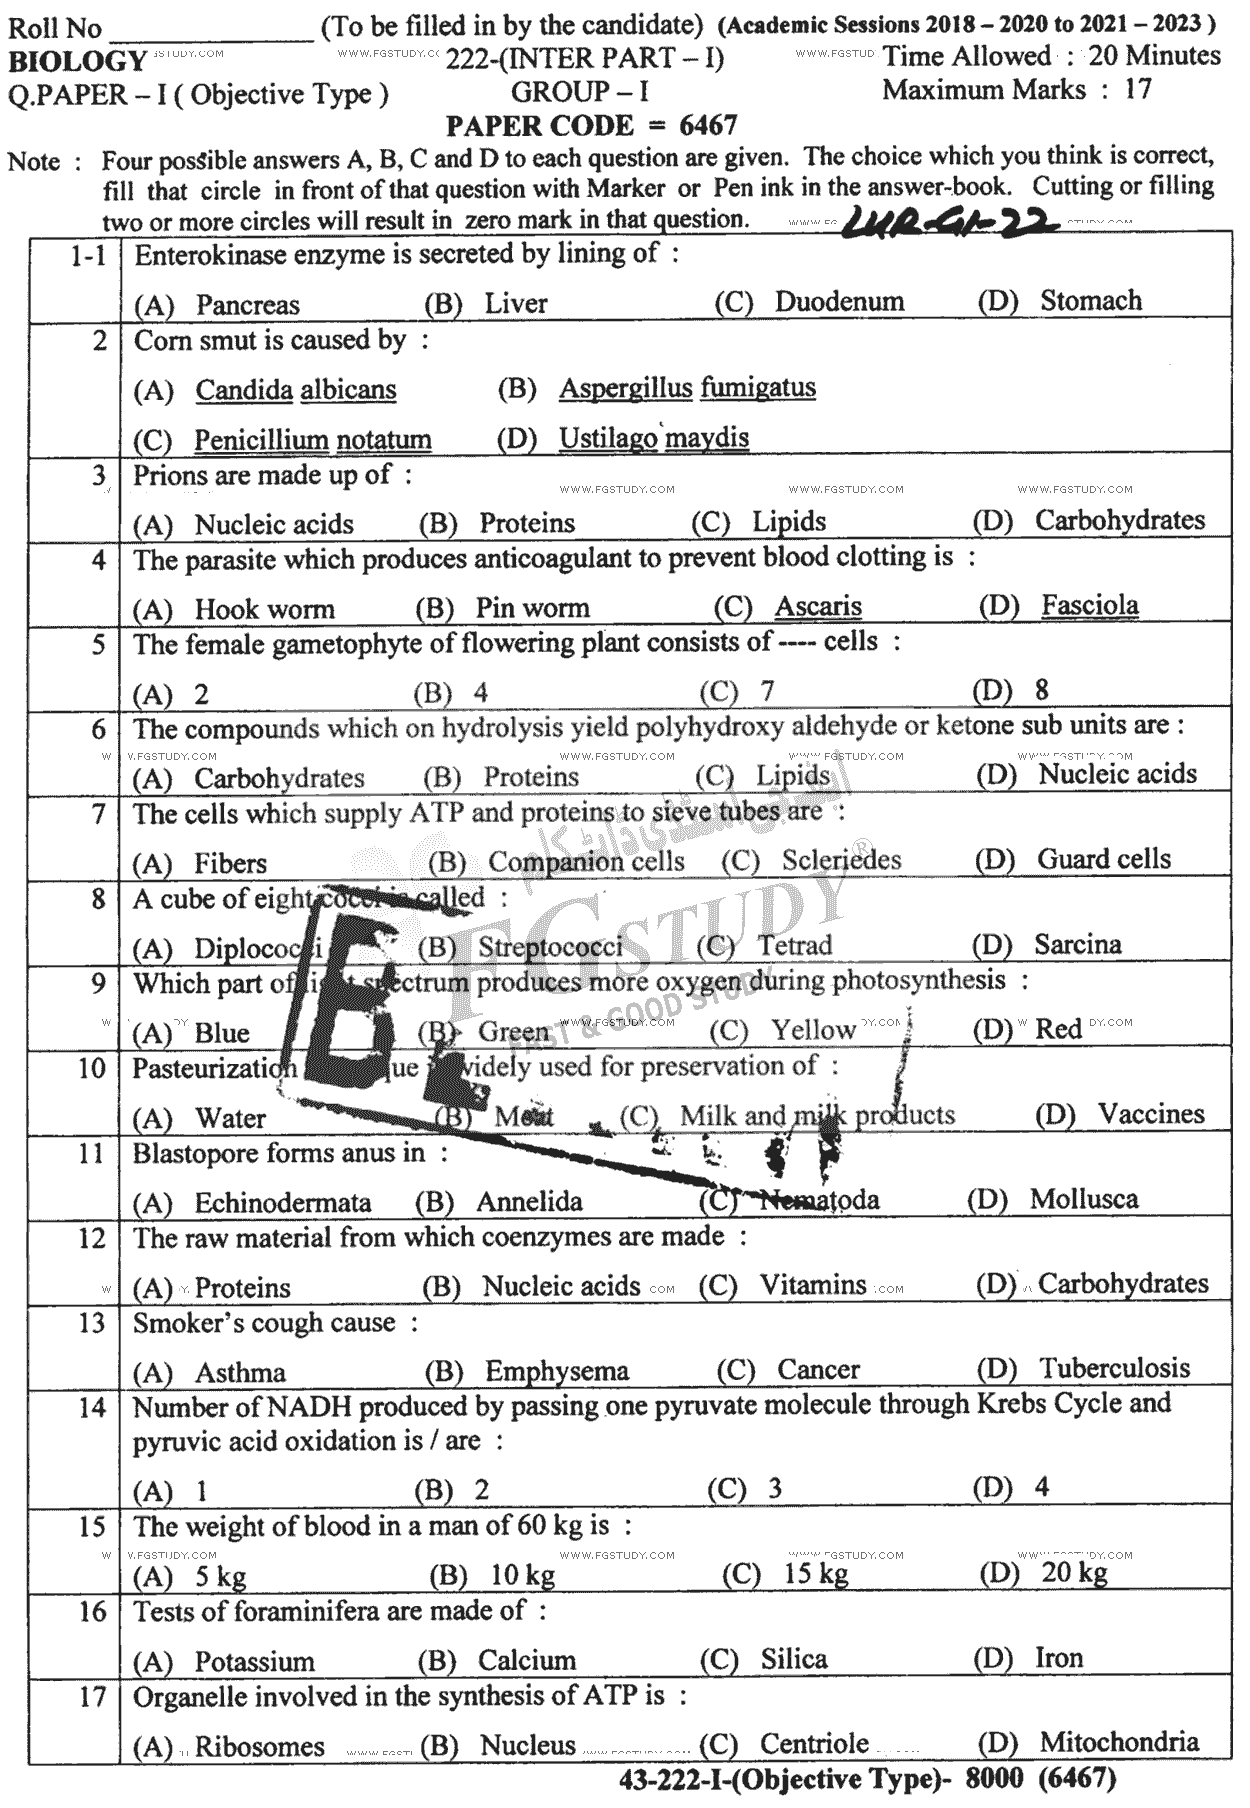 Roll No ____________ (To be filled in by the candidate) (Academic Sessions 2018 – 2020 to 2021 – 2023 )
BIOLOGY 222-(INTER PART – I) Time Allowed : 20 Minutes
Q.PAPER – I ( Objective Type ) GROUP – I Maximum Marks : 17
PAPER CODE = 6467
Note : Four possible answers A, B, C and D to each question are given. The choice which you think is correct,
fill that circle in front of that question with Marker or Pen ink in the answer-book. Cutting or filling
two or more circles will result in zero mark in that question. LHR-G1-22
1-1 Enterokinase enzyme is secreted by lining of :
(A) Pancreas (B) Liver (C) Duodenum (D) Stomach
2 Corn smut is caused by :
(A) Candida albicans (B) Aspergillus fumigatus
(C) Penicillium notatum (D) Ustilago maydis
3 Prions are made up of :
WWW.FGSTUDY.COM WWW.FGSTUDY.COM WWW.FGSTUDY.COM
(A) Nucleic acids (B) Proteins (C) Lipids (D) Carbohydrates
4 The parasite which produces anticoagulant to prevent blood clotting is :
(A) Hook worm (B) Pin worm (C) Ascaris (D) Fasciola
5 The female gametophyte of flowering plant consists of ---- cells :
(A) 2 (B) 4 (C) 7 (D) 8
6 The compounds which on hydrolysis yield polyhydroxy aldehyde or ketone sub units are :
(A) Carbohydrates (B) Proteins (C) Lipids (D) Nucleic acids
7 The cells which supply ATP and proteins to sieve tubes are :
ایف جی اسٹڈی ڈاٹ کام
(A) Fibers (B) Companion cells (C) Scleriedes (D) Guard cells
8 A cube of eight cocci is called :
FG STUDY ®
(A) Diplococci (B) Streptococci (C) Tetrad (D) Sarcina
9 Which part of light spectrum produces more oxygen during photosynthesis :
FAST & GOOD STUDY
(A) Blue (B) Green (C) Yellow (D) Red
10 Pasteurization technique is widely used for preservation of :
(A) Water (B) Meat (C) Milk and milk products (D) Vaccines
11 Blastopore forms anus in :
(A) Echinodermata (B) Annelida (C) Nematoda (D) Mollusca
12 The raw material from which coenzymes are made :
(A) Proteins (B) Nucleic acids (C) Vitamins (D) Carbohydrates
13 Smoker's cough cause :
(A) Asthma (B) Emphysema (C) Cancer (D) Tuberculosis
14 Number of NADH produced by passing one pyruvate molecule through Krebs Cycle and
pyruvic acid oxidation is / are :
(A) 1 (B) 2 (C) 3 (D) 4
15 The weight of blood in a man of 60 kg is :
(A) 5 kg (B) 10 kg (C) 15 kg (D) 20 kg
16 Tests of foraminifera are made of :
(A) Potassium (B) Calcium (C) Silica (D) Iron
17 Organelle involved in the synthesis of ATP is :
(A) Ribosomes (B) Nucleus (C) Centriole (D) Mitochondria
43-222-I-(Objective Type)- 8000 (6467)